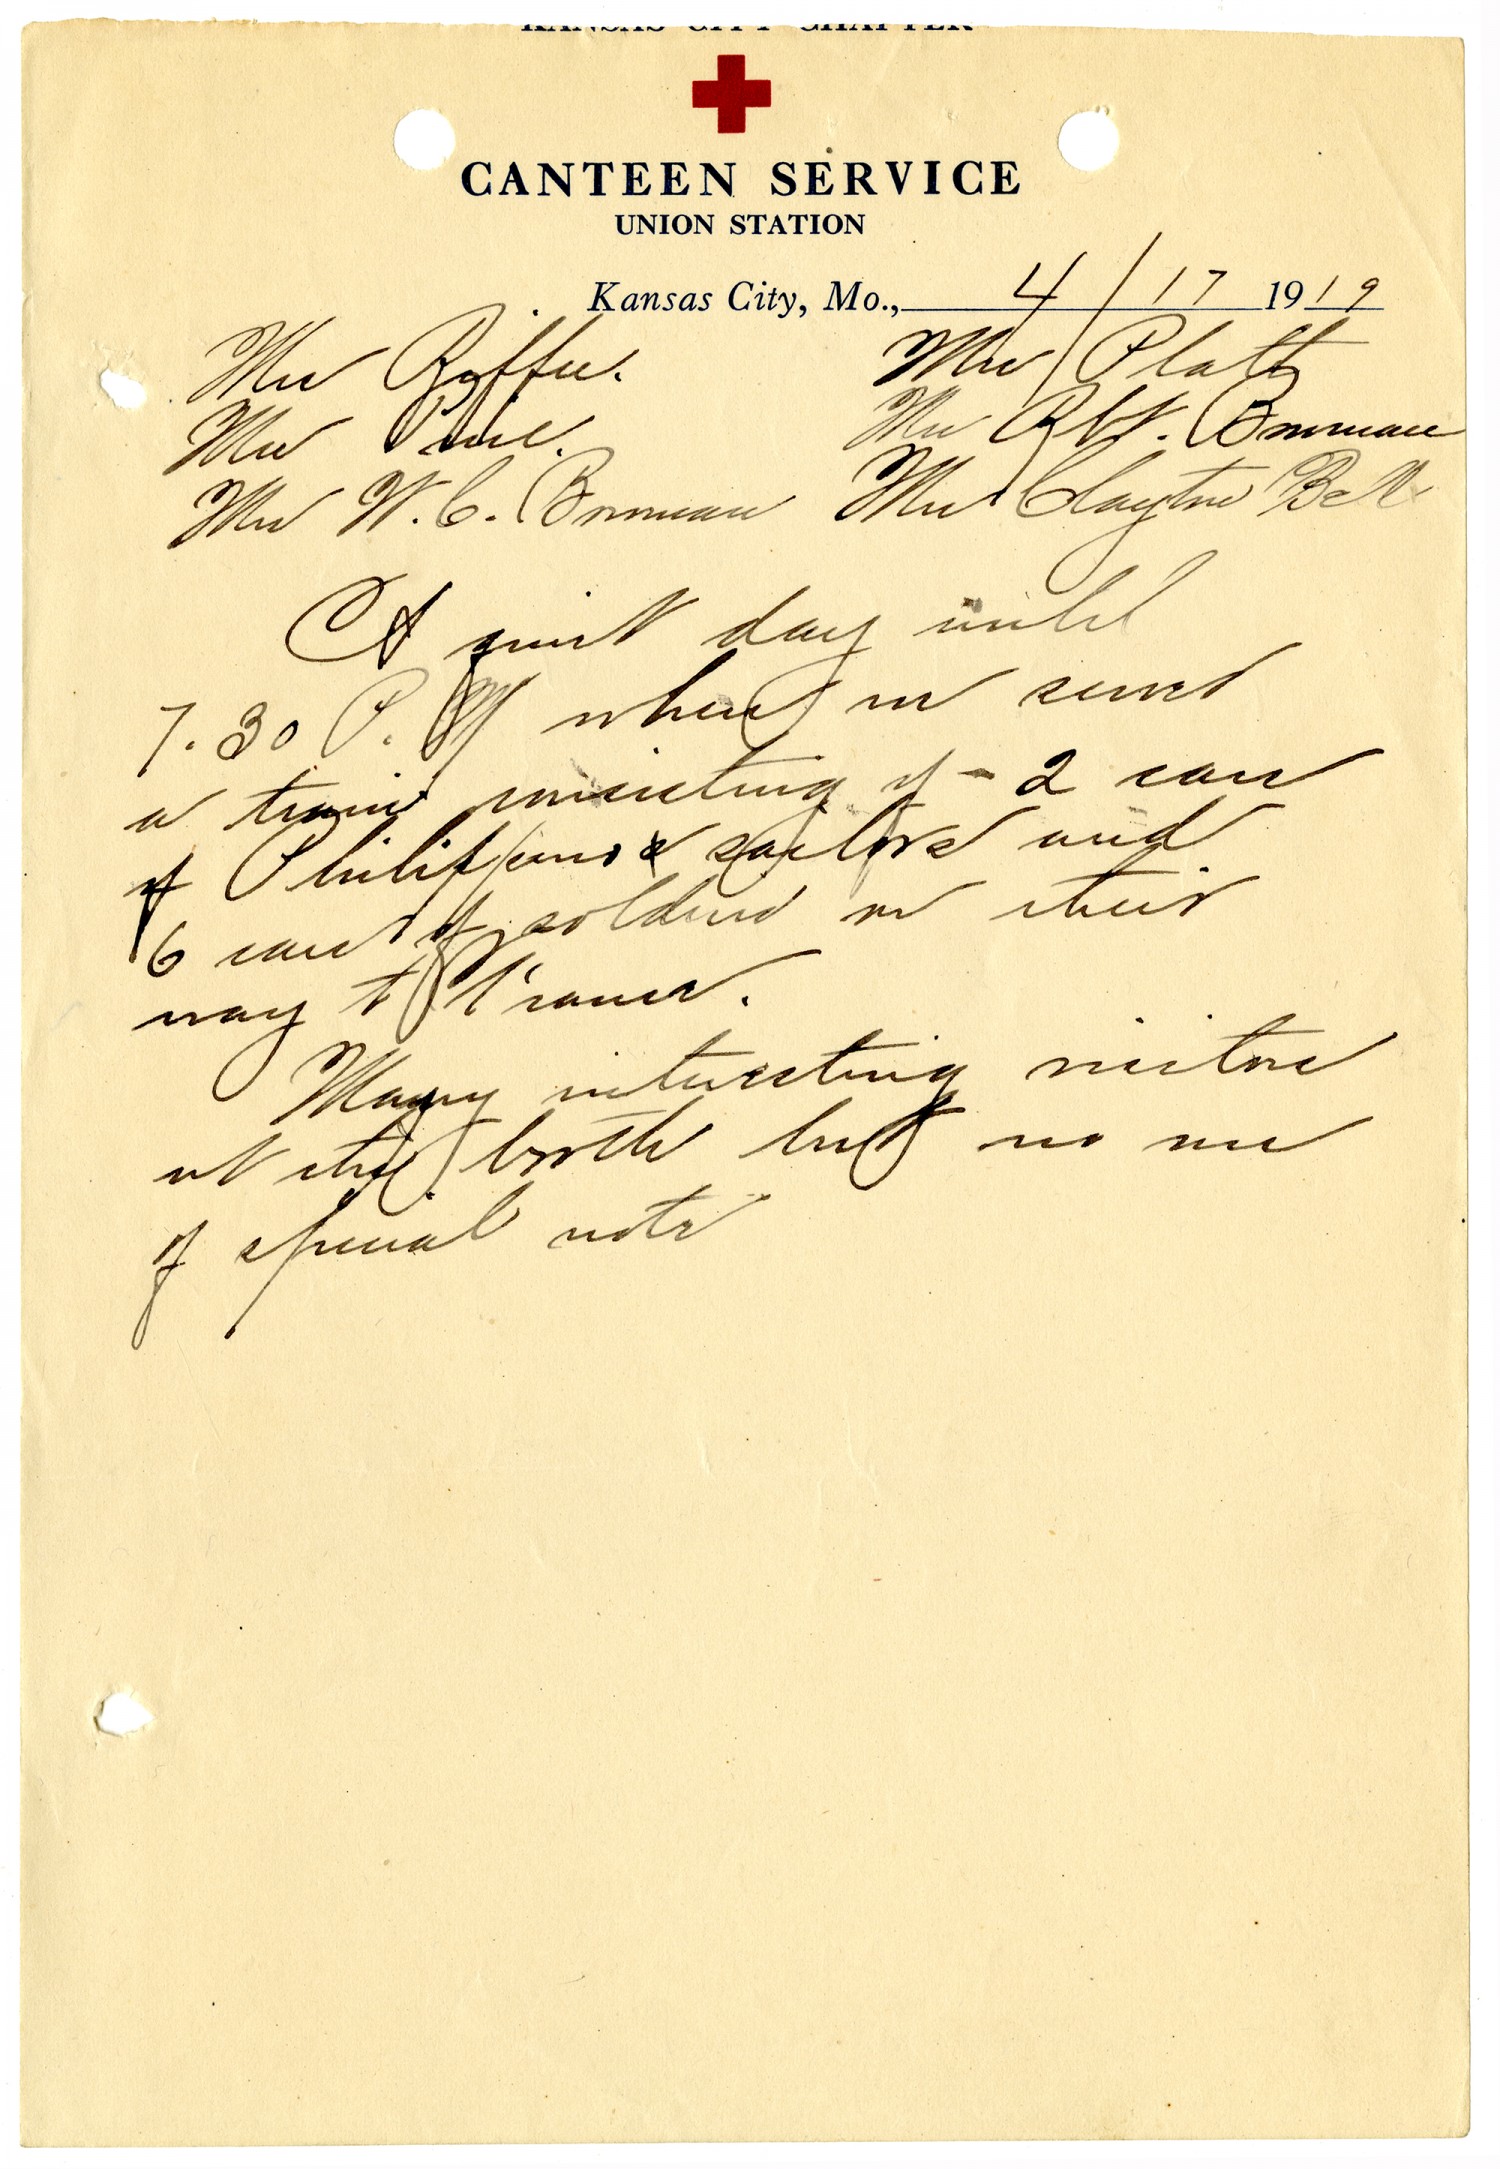 KANSAS CITY CHAPTER
CANTEEN SERVICE
UNION STATION
Kansas City, Mo., 4/17 1919
Mrs Mrs Platt
Mrs Mrs Rbt.
Mrs W. C. Mrs Clayton Bell
A quiet day until
7.30 P. M when we served
a train consisting of - 2 cars
of sailors and
6 cars of soldiers on their
way to France.
Many interesting visitors
at the booth but no one
of special note